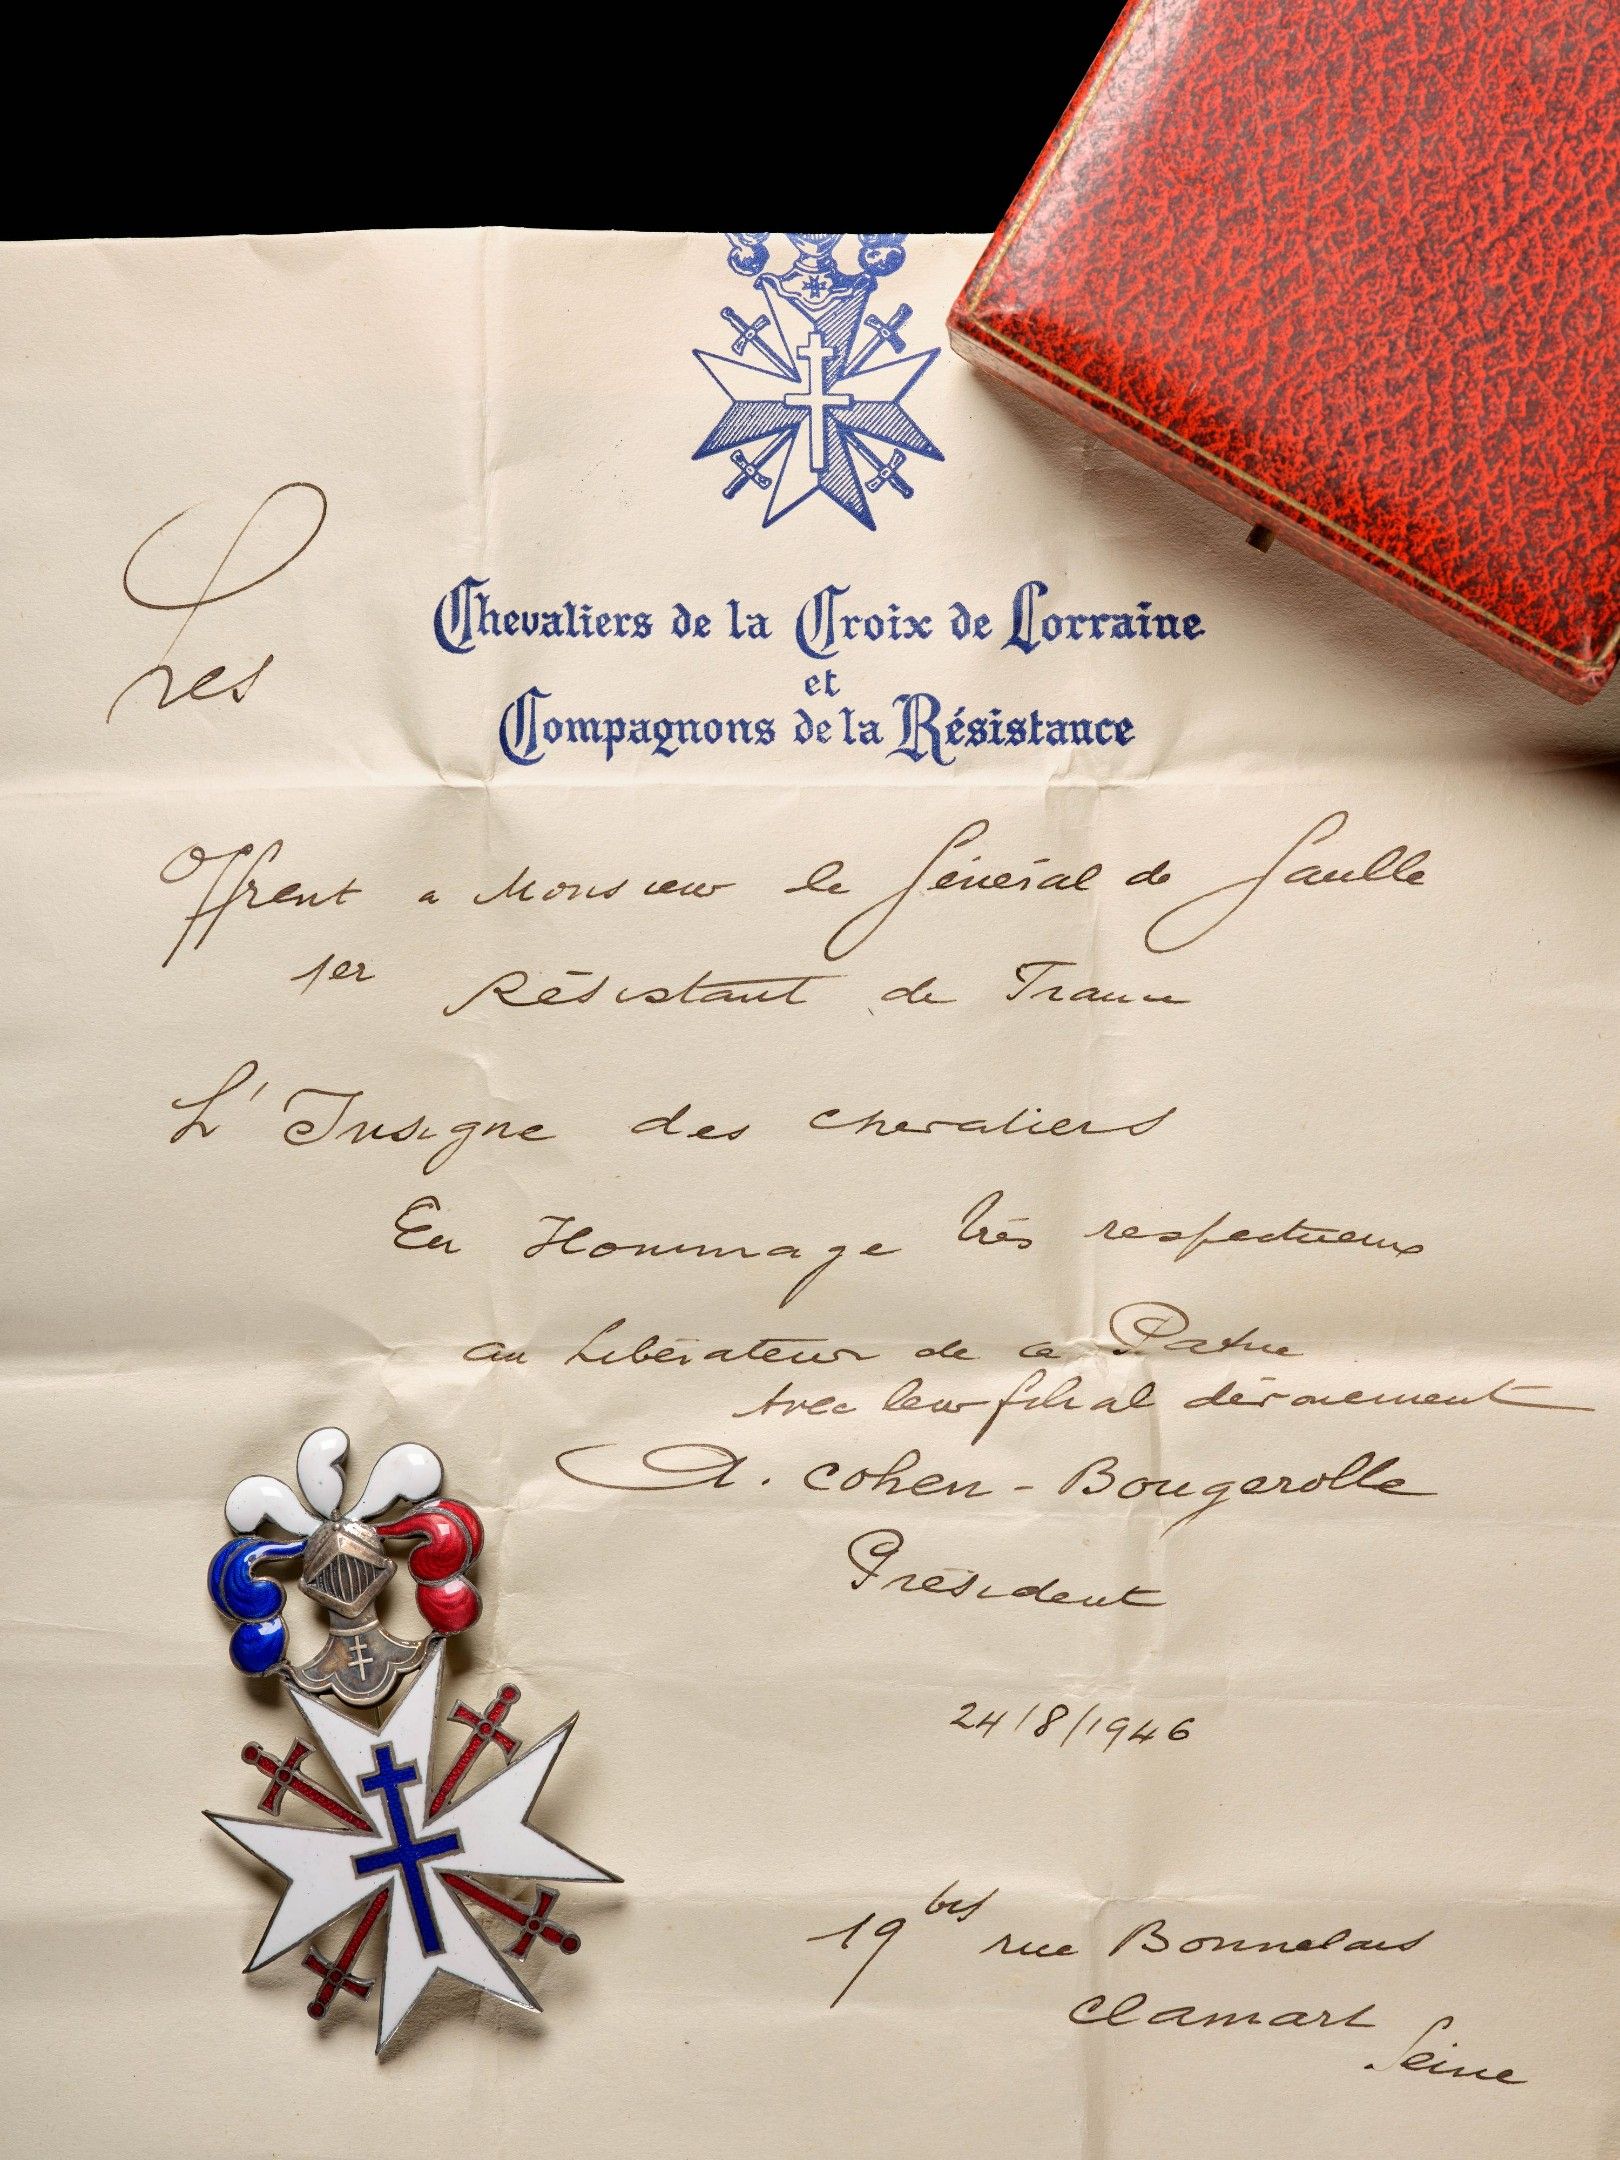 Les
Chevaliers de la Croix de Lorraine
et
Compagnons de la Résistance
Offrent a Monsieur le Général de Gaulle
1er Résistant de France
L'Insigne des chevaliers
En Hommage très respectueux
au Libérateur de la Patrie
Avec leur filial dévouement
A. Cohen-Bougerolle
Président
24/8/1946
19 bis rue Bonnelais
Clamart
Seine